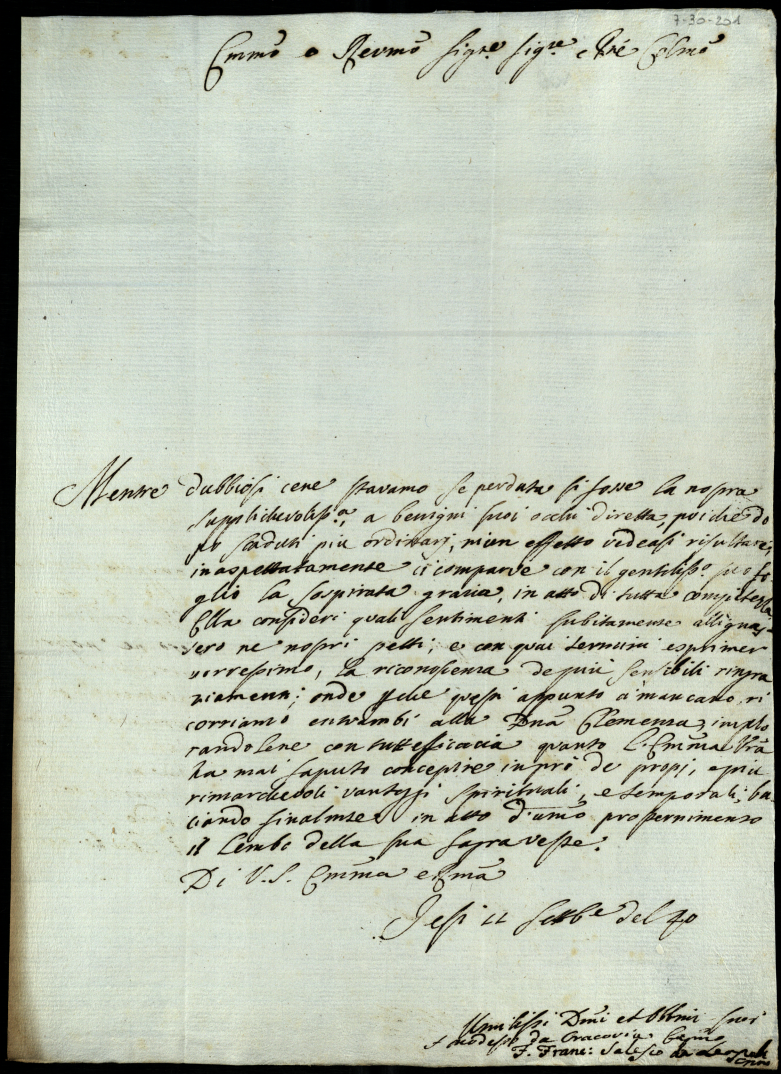 7-30-201
Emmõ e Revmõ Sigre Sigre e Prẽ Colmõ
Mentre dubbiosi cene stavamo se perduta si fosse la nostra
supplichevolissa, a benigni suoi occhi diretta, poiche do
po scaduti più ordinarj, niun effetto vedeasi risultare;
inaspettatamente ci comparve con il gentilisso suo fo
glio la sospirata grazia, in atto di tutta compitezza.
Ella consideri quali sentimenti subitamente allignas
sero ne nostri petti, e con quai termini esprimer
vorressimo, la riconoscenza de più sensibili ringra
ziamenti; onde pche questi appunto ci mancano, ri
corriamo entrambi alla Dna Clemenza, implo
randolene con tutt'efficacia quanto l'Emma Vrã
ha mai saputo concepire in prò de propj, e più
rimarchevoli vantaggi spirituali, e temporali; ba
ciando finalmte in atto d'umõ prosternimento
il Lembo della sua sagra veste.
Di V.S. Emma e Rmã
Jesi 11 Settbe del 40
Umilissi Dmi et Obbmi suoi
F. Modesto da Cracovia Capnõ
F. Franc: Salesio da Leopoli
Capno